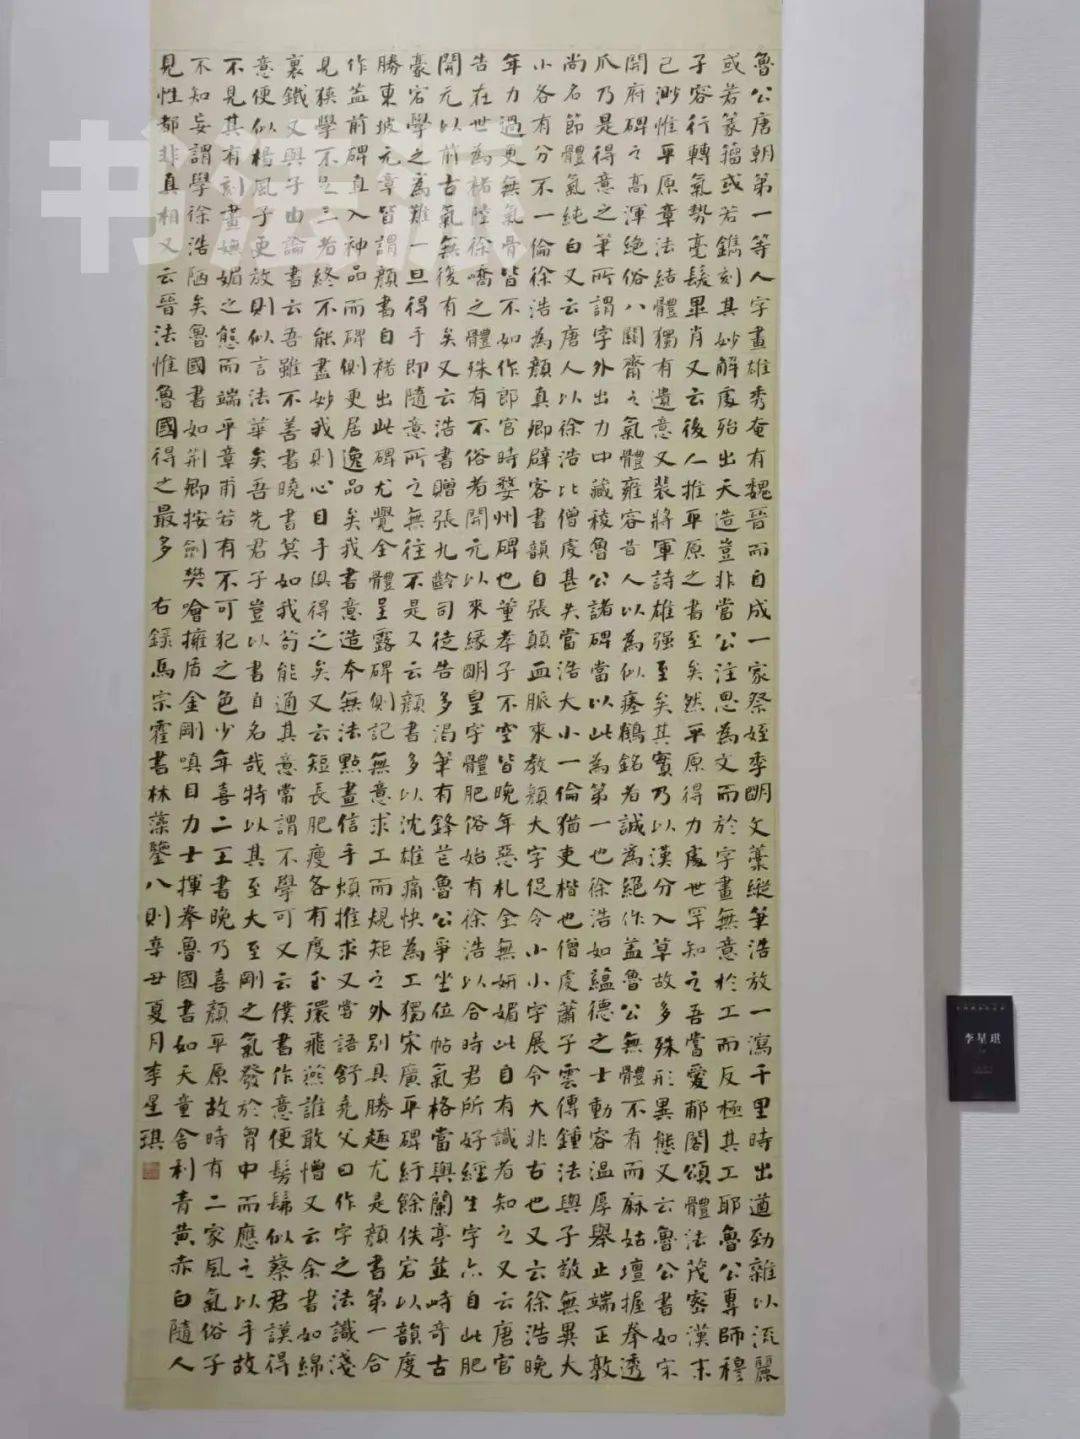 魯公唐朝第一等人字畫雄秀奄有魏晉而自成一家祭姪季明文藁縱筆浩放一瀉千里時出遒勁雜以流麗
或若篆籀或若鐫刻其妙解處殆出天造豈非當公注思為文而於字畫無意於工而反極其工耶魯公專師穆
子容行轉氣勢毫髮畢肖又云後人推平原之書至矣然平原得力處世罕知之吾嘗愛郙閣頌體法茂密漢末
已渺惟平原章法結體獨有遺意又裴將軍詩雄强至矣其實乃以漢分入草故多殊形異態又云魯公書如宋
開府碑之高渾絕俗八關齋之氣體雍容昔人以為似瘞鶴銘者誠為絕作蓋魯公無體不有而麻姑壇握拳透
爪乃是得意之筆所謂字外出力中藏稜魯公諸碑當以此為第一也徐浩如蘊德之士動容溫厚舉止端正敦
尚名節體氣純白又云唐人以徐浩比僧虔甚失當浩大小一倫猶吏楷也僧虔蕭子雲傳鍾法與子敬無異大
小各有分不一倫徐浩為顏真卿辟客書韻自張顛血脈來教顏大字促令小小字展令大非古也又云徐浩晚
年力過更無氣骨皆不如作郎官時婺州碑也董孝子不空皆晚年惡札全無妍媚此自有識者知之又云唐官
告在世為褚陸徐嶠之體殊有不俗者開元以來緣明皇字體肥俗始有徐浩以合時君所好經生字亦自此肥
開元以前古氣無後有矣又云浩書贈張九齡司徒告多渴筆有鋒芒魯公爭坐位帖氣格當與蘭亭並峙奇古
豪宕學之為難一旦得手即隨意所之無往不是又云顏書多以沈雄痛快為工獨宋廣平碑紆餘佚宕以韻度
勝東坡元章皆謂顏書自褚出此碑尤覺全體呈露碑側記無意求工而規矩之外別具勝趣尤是顏書第一合
作蓋前碑直入神品而碑側更居逸品矣我書意造本無法點畫信手煩推求又嘗語舒堯父曰作字之法識淺
見狹學不足三者終不能盡妙我則心目手俱得之矣又云短長肥瘦各有度玉環飛燕誰敢憎又云余書如綿
裹鐵又與子由論書云吾雖不善書曉書莫如我苟能通其意常謂不學可又云僕書作意便髣髴似蔡君謨得
意便似楊風子更放則似言法華矣吾先君子豈以書自名哉特以其至大至剛之氣發於胷中而應之以手故
不見其有刻畫嫵媚之態而端乎章甫若有不可犯之色少年喜二王書晚乃喜顏平原故時有二家風氣俗子
不知妄謂學徐浩陋矣魯國書如荊卿按劍樊噲擁盾金剛瞋目力士揮拳魯國書如天童舍利青黃赤白隨人
見性都非真相又云晉法惟魯國得之最多 右錄馬宗霍書林藻鑒八則辛丑夏月李星琪
李星琪